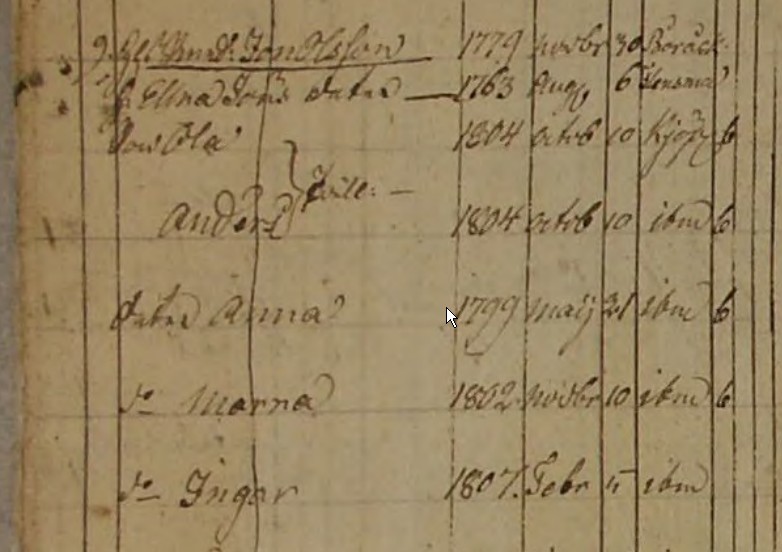 Jon Olsson 1779 Novbr 30
h. Elina Jöns dotter 1763 Aug 6
Son Ola 1804 octob 10 6
Tvill:
Anders 1804 octob 10 ibm 6
dotter Anna 1799 maij 21 ibm 6
do Marna 1802 novbr 10 ibm 6
do Ingar 1807. Febr 5 ibm